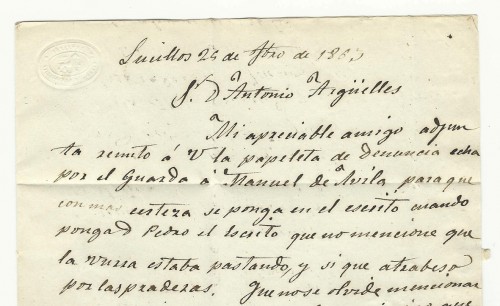 Lucillos 25 de Sbro de 188
Sr. D. Antonio Argüelles
Mi apreciable amigo adjun
ta remito á V la papeleta de Denuncia echa
por el Guarda á Manuel de Avila para que
con mas certeza se ponga en el escrito cuando
ponga D Pedro el Escrito que no mencione que
la vurra estaba pastando, y si que atrabeso
por las praderas. Que no se olvide mencionar